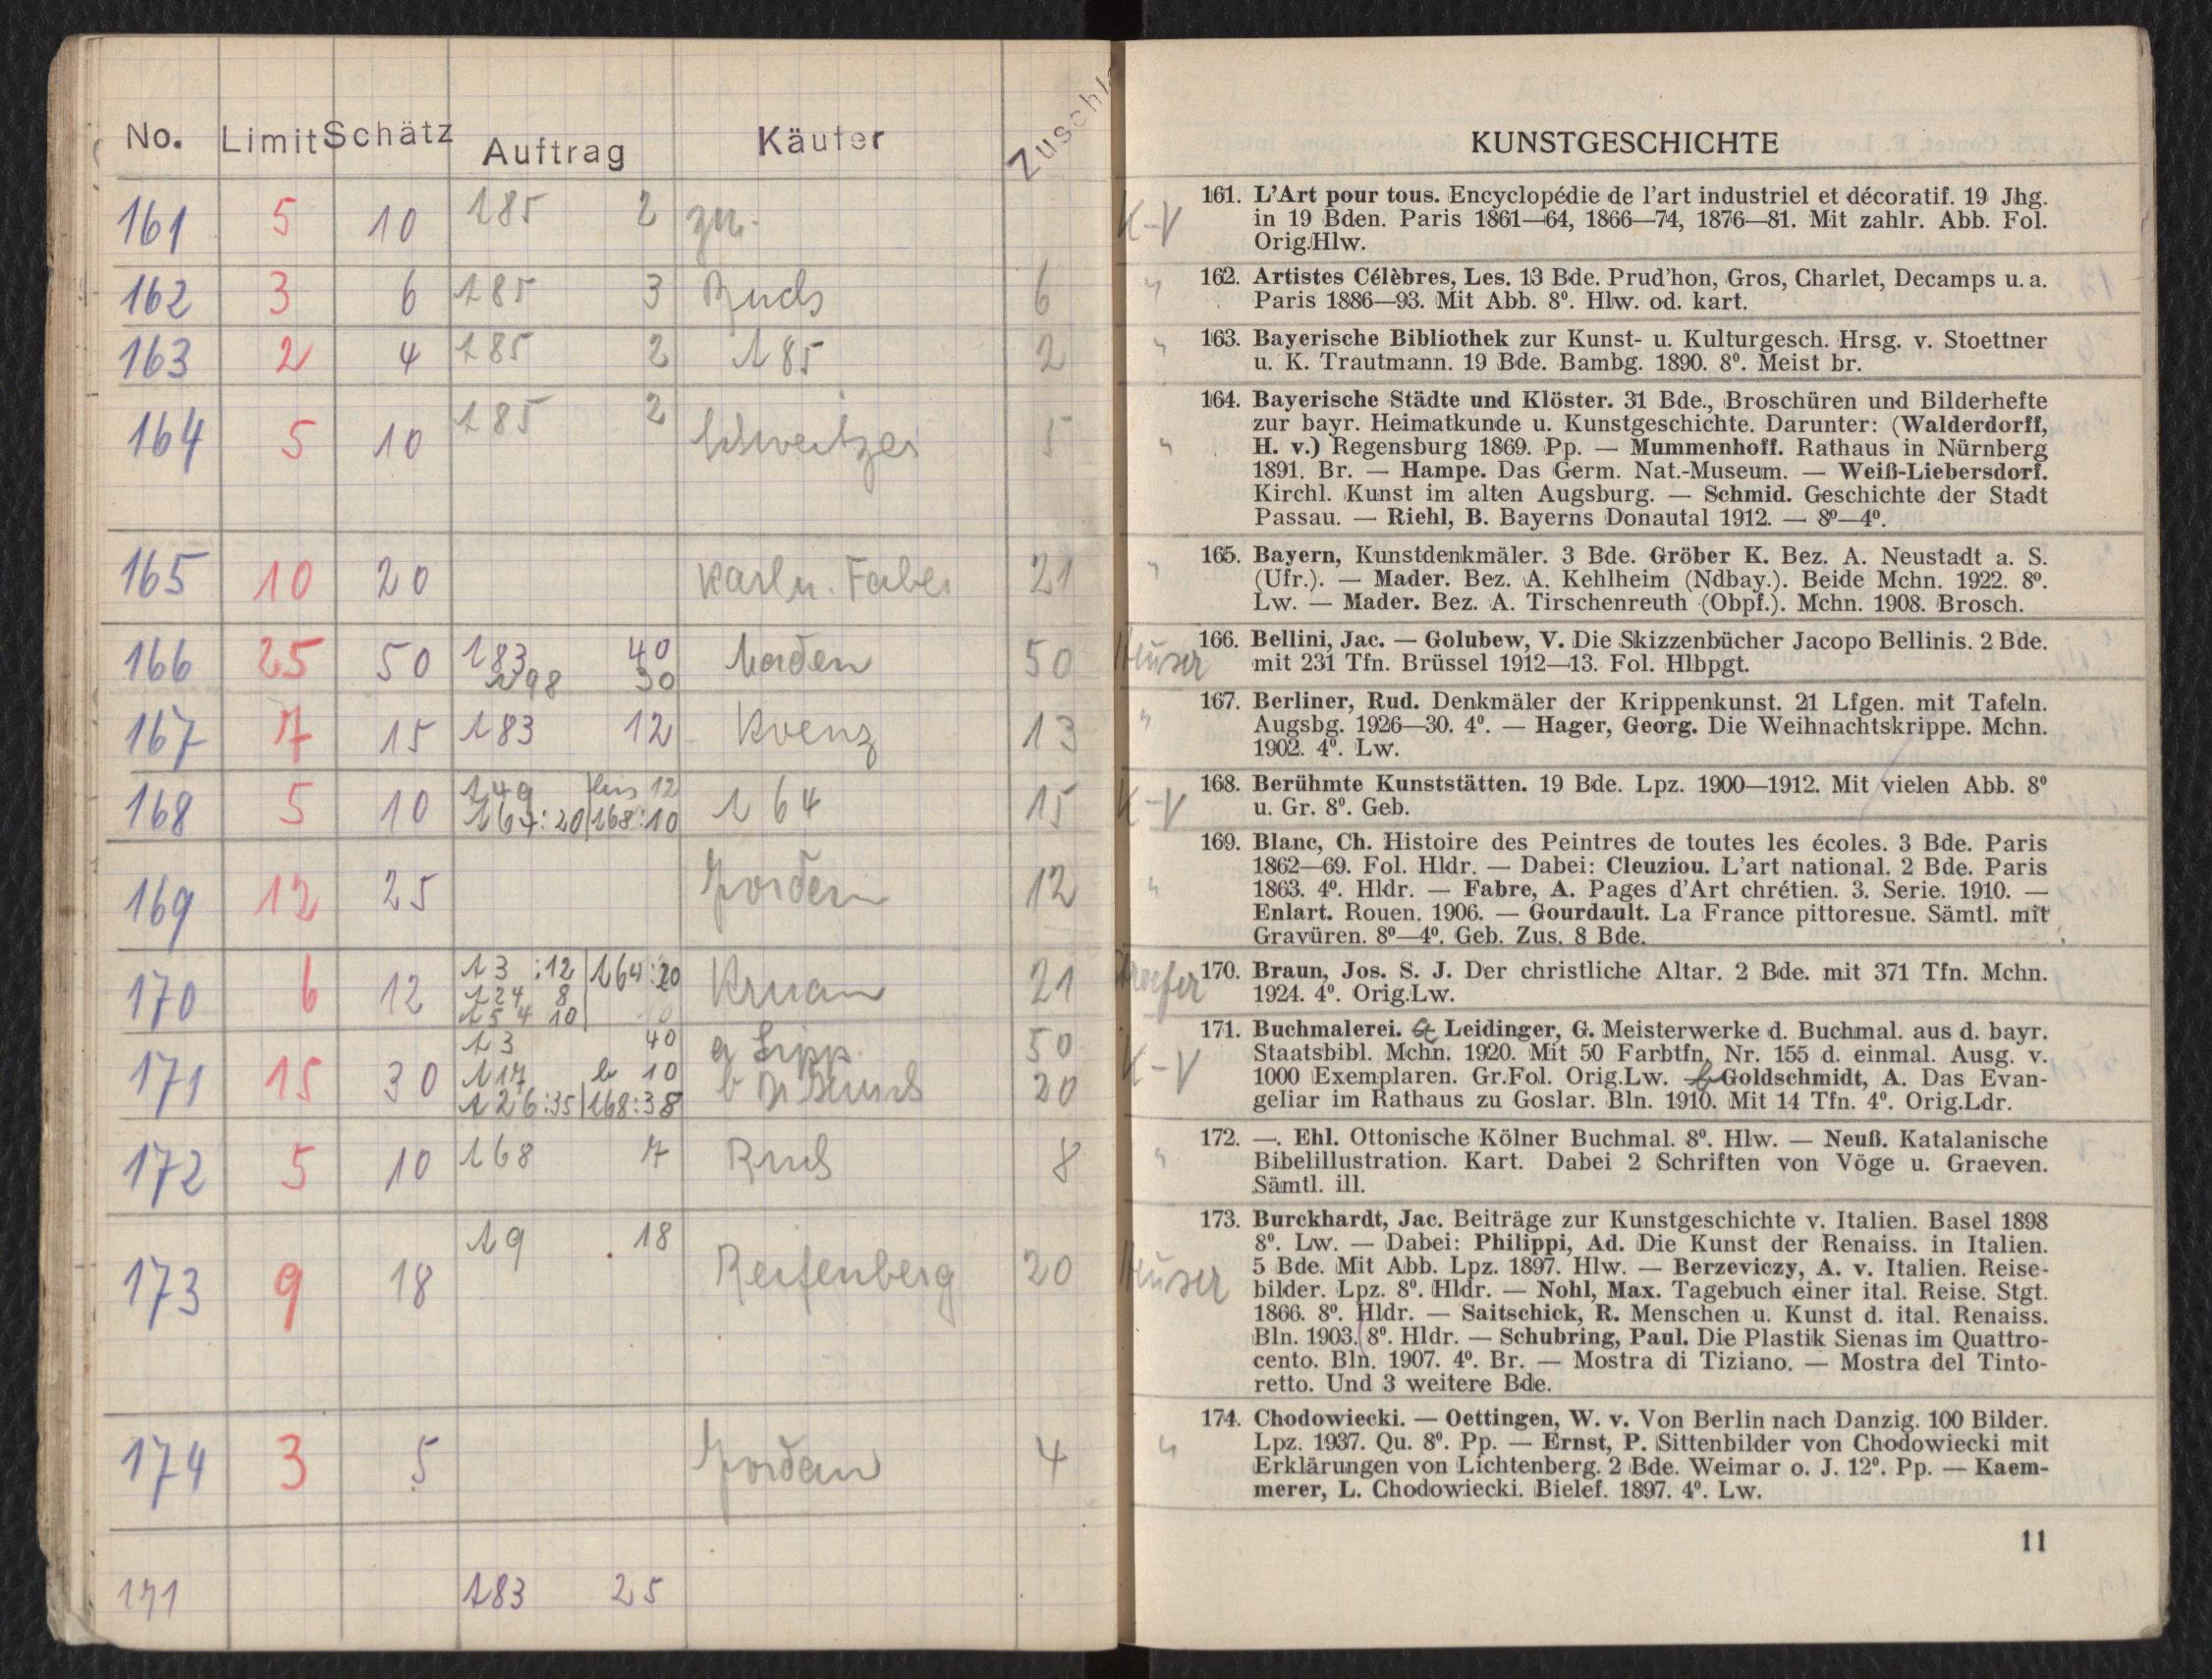 No. Limit Schätz Auftrag Käufer Zuschl
161 5 10 185 2 zur.
162 3 6 185 3 Ruds 6
163 2 4 185 2 185 2
164 5 10 185 2 Schweitzer 5
165 10 20 Karl u. Faber 21
166 25 50 183 40 50
298 30
167 7 15 183 12 Krenz 13
168 5 10 149 bis 12 164 15
167:20 168:10
169 12 25 Jordan 12
170 6 12 13 :12 164:20 21
124 8
154 10
171 15 30 13 40 a Lipp 50
117 b 10 b 20
126:35 168:38
172 5 10 168 7 8
173 9 18 19 18 Reifenberg 20
174 3 5 Jordan 4
171 183 25
KUNSTGESCHICHTE
K-V 161. L'Art pour tous. Encyclopédie de l'art industriel et décoratif. 19 Jhg.
in 19 Bden. Paris 1861—64, 1866—74, 1876—81. Mit zahlr. Abb. Fol.
Orig.Hlw.
" 162. Artistes Célèbres, Les. 13 Bde. Prud'hon, Gros, Charlet, Decamps u. a.
Paris 1886—93. Mit Abb. 8⁰. Hlw. od. kart.
" 163. Bayerische Bibliothek zur Kunst- u. Kulturgesch. Hrsg. v. Stoettner
u. K. Trautmann. 19 Bde. Bambg. 1890. 8⁰. Meist br.
164. Bayerische Städte und Klöster. 31 Bde., Broschüren und Bilderhefte
zur bayr. Heimatkunde u. Kunstgeschichte. Darunter: (Walderdorff,
" H. v.) Regensburg 1869. Pp. — Mummenhoff. Rathaus in Nürnberg
1891. Br. — Hampe. Das Germ. Nat.-Museum. — Weiß-Liebersdorf.
Kirchl. Kunst im alten Augsburg. — Schmid. Geschichte der Stadt
Passau. — Riehl, B. Bayerns Donautal 1912. — 8⁰—4⁰.
" 165. Bayern, Kunstdenkmäler. 3 Bde. Gröber K. Bez. A. Neustadt a. S.
(Ufr.). — Mader. Bez. A. Kehlheim (Ndbay.). Beide Mchn. 1922. 8⁰.
Lw. — Mader. Bez. A. Tirschenreuth (Obpf.). Mchn. 1908. Brosch.
Heuser 166. Bellini, Jac. — Golubew, V. Die Skizzenbücher Jacopo Bellinis. 2 Bde.
mit 231 Tfn. Brüssel 1912—13. Fol. Hlbpgt.
" 167. Berliner, Rud. Denkmäler der Krippenkunst. 21 Lfgen. mit Tafeln.
Augsbg. 1926—30. 4⁰. — Hager, Georg. Die Weihnachtskrippe. Mchn.
1902. 4⁰. Lw.
K-V 168. Berühmte Kunststätten. 19 Bde. Lpz. 1900—1912. Mit vielen Abb. 8⁰
u. Gr. 8⁰. Geb.
169. Blanc, Ch. Histoire des Peintres de toutes les écoles. 3 Bde. Paris
1862—69. Fol. Hldr. — Dabei: Cleuziou. L'art national. 2 Bde. Paris
" 1863. 4⁰. Hldr. — Fabre, A. Pages d'Art chrétien. 3. Serie. 1910. —
Enlart. Rouen. 1906. — Gourdault. La France pittoresue. Sämtl. mit
Gravüren. 8⁰—4⁰. Geb. Zus. 8 Bde.
170. Braun, Jos. S. J. Der christliche Altar. 2 Bde. mit 371 Tfn. Mchn.
1924. 4⁰. Orig.Lw.
171. Buchmalerei. a Leidinger, G. Meisterwerke d. Buchmal. aus d. bayr.
K-V Staatsbibl. Mchn. 1920. Mit 50 Farbtfn. Nr. 155 d. einmal. Ausg. v.
1000 Exemplaren. Gr.Fol. Orig.Lw. — b Goldschmidt, A. Das Evan-
geliar im Rathaus zu Goslar. Bln. 1910. Mit 14 Tfn. 4⁰. Orig.Ldr.
172. —. Ehl. Ottonische Kölner Buchmal. 8⁰. Hlw. — Neuß. Katalanische
" Bibelillustration. Kart. Dabei 2 Schriften von Vöge u. Graeven.
Sämtl. ill.
173. Burckhardt, Jac. Beiträge zur Kunstgeschichte v. Italien. Basel 1898
8⁰. Lw. — Dabei: Philippi, Ad. Die Kunst der Renaiss. in Italien.
Heuser 5 Bde. Mit Abb. Lpz. 1897. Hlw. — Berzeviczy, A. v. Italien. Reise-
bilder. Lpz. 8⁰. Hldr. — Nohl, Max. Tagebuch einer ital. Reise. Stgt.
1866. 8⁰. Hldr. — Saitschick, R. Menschen u. Kunst d. ital. Renaiss.
Bln. 1903. 8⁰. Hldr. — Schubring, Paul. Die Plastik Sienas im Quattro-
cento. Bln. 1907. 4⁰. Br. — Mostra di Tiziano. — Mostra del Tinto-
retto. Und 3 weitere Bde.
174. Chodowiecki. — Oettingen, W. v. Von Berlin nach Danzig. 100 Bilder.
" Lpz. 1937. Qu. 8⁰. Pp. — Ernst, P. Sittenbilder von Chodowiecki mit
Erklärungen von Lichtenberg. 2 Bde. Weimar o. J. 12⁰. Pp. — Kaem-
merer, L. Chodowiecki. Bielef. 1897. 4⁰. Lw.
11